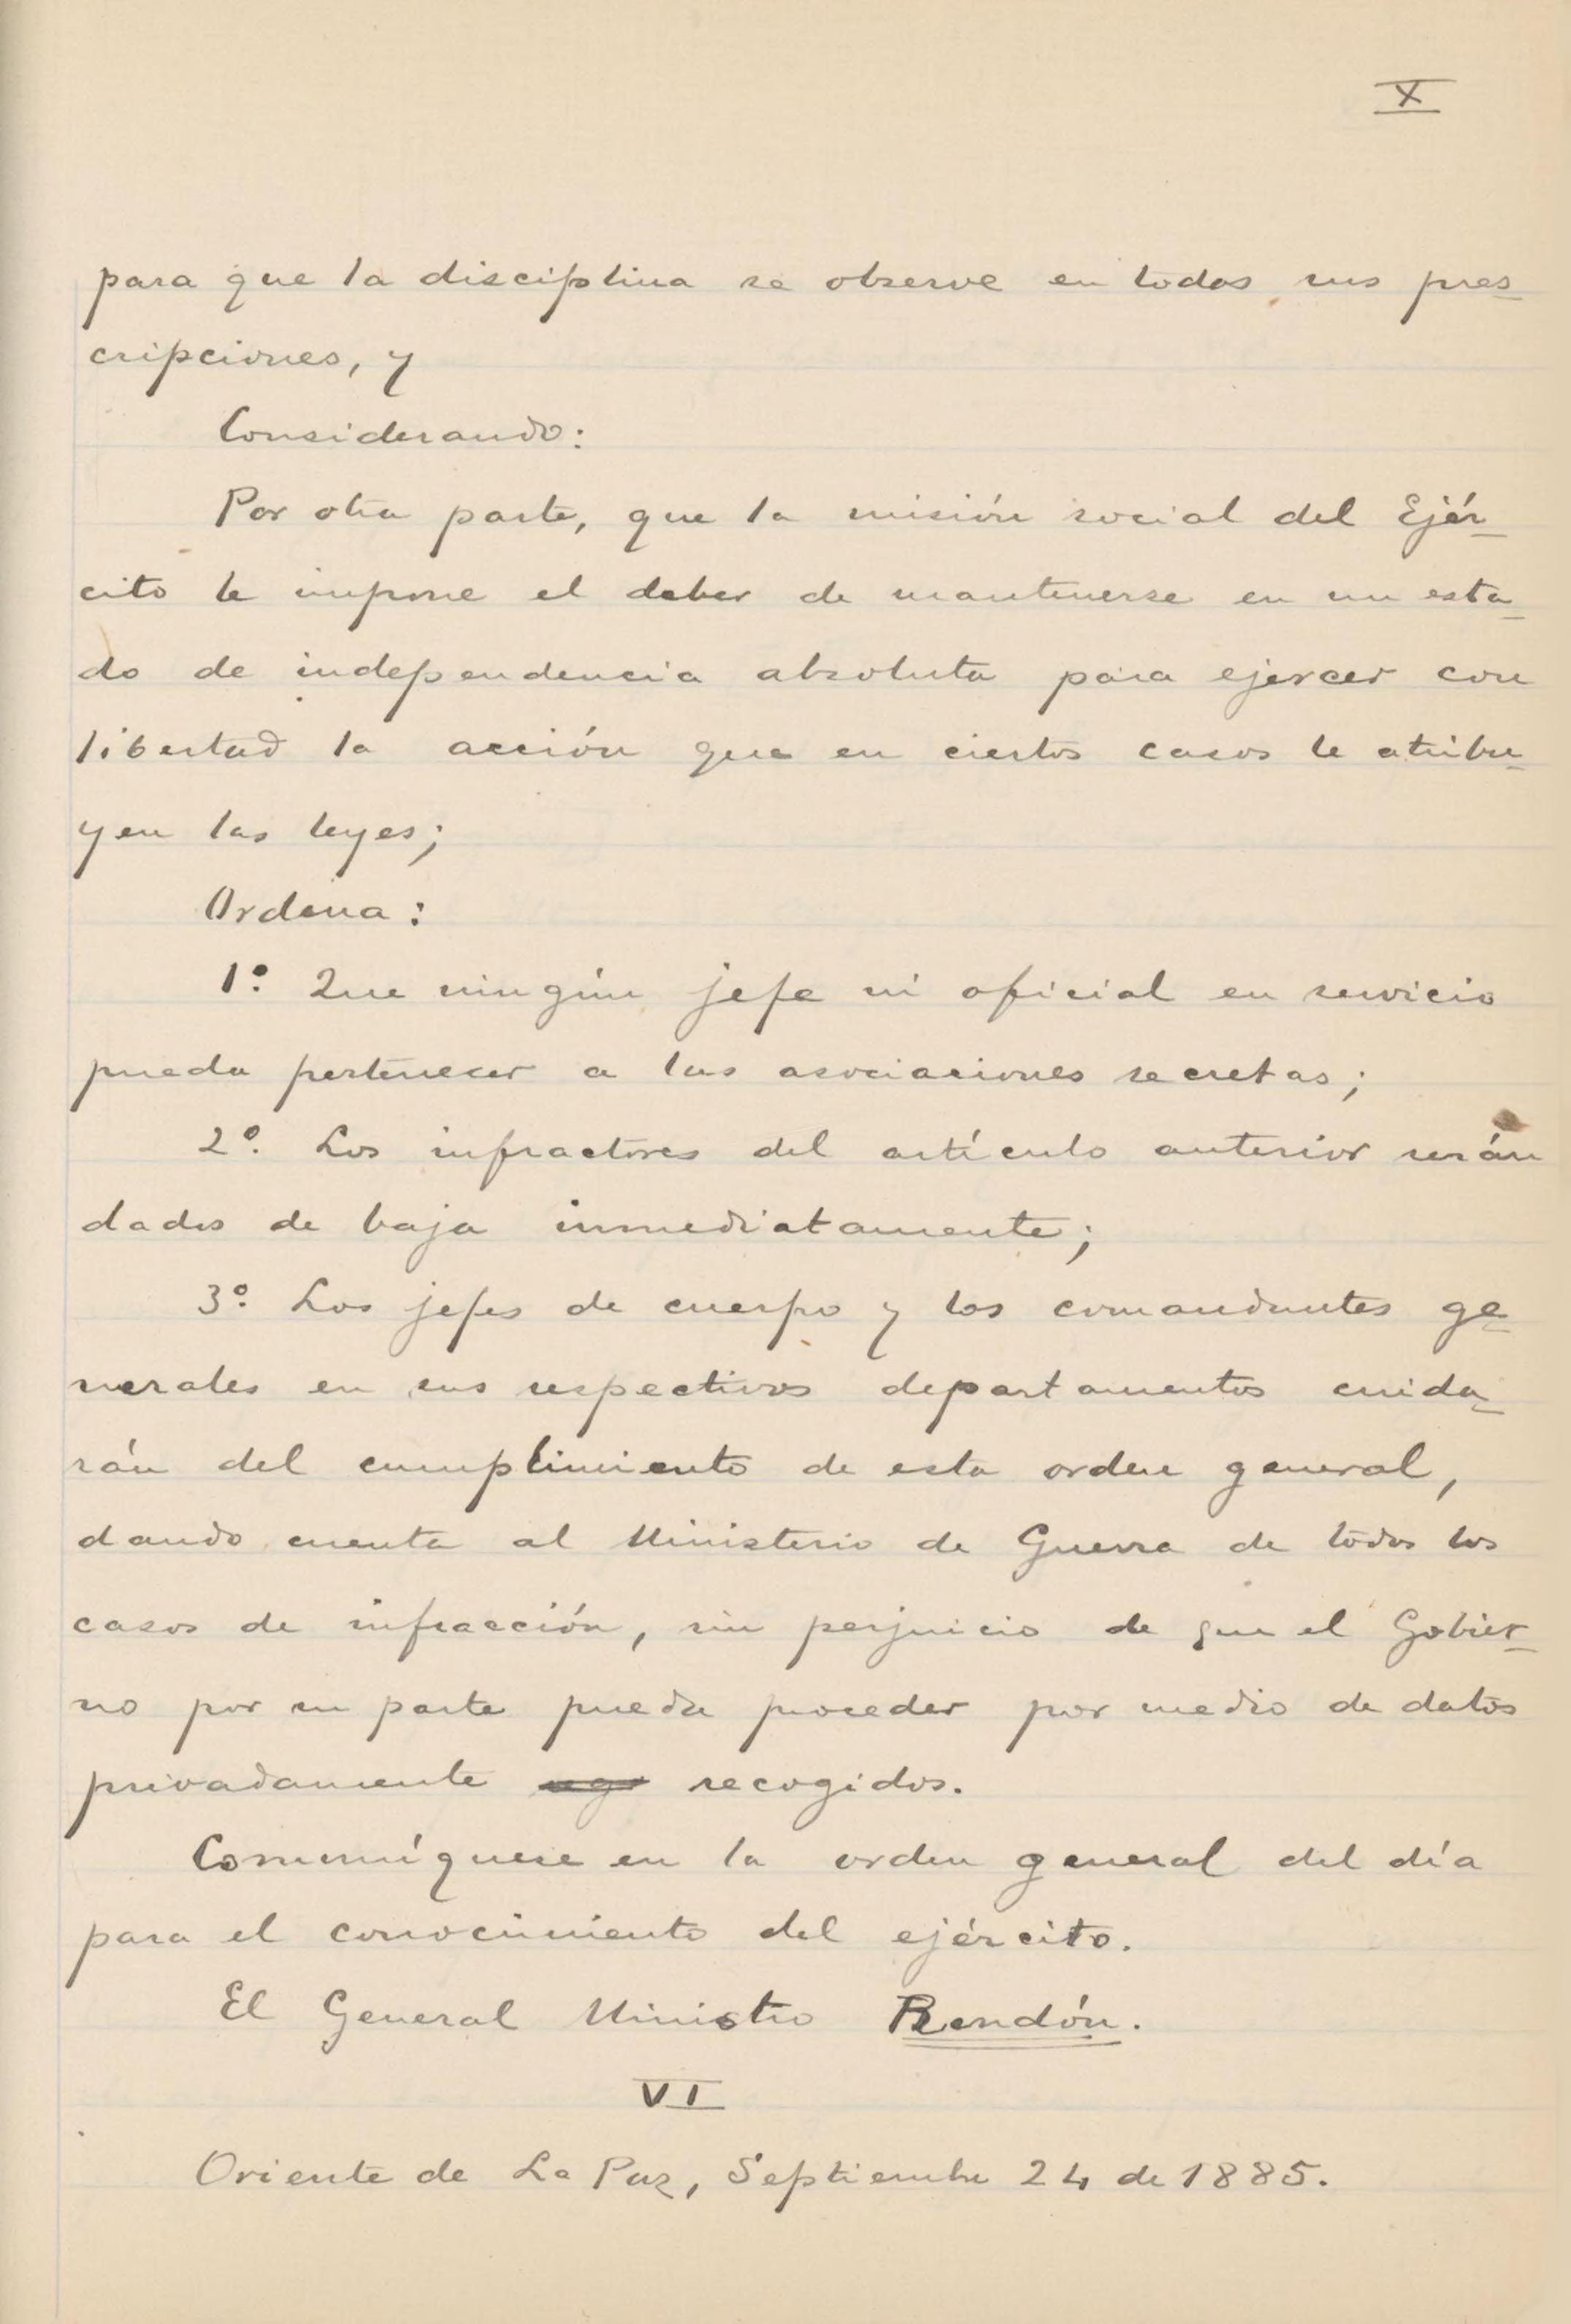 X
para que la disciplina se observe en todas sus pres-
cripciones, y
Considerando:
Por otra parte, que la misión social del Ejér-
cito le impone el deber de mantenerse en un esta-
do de independencia absoluta para ejercer con
libertad la acción que en ciertos casos le atribu-
yen las leyes;
Ordena:
1º. Que ningún jefe ni oficial en servicio
pueda pertenecer a las asociaciones secretas;
2º. Los infractores del artículo anterior serán
dados de baja inmediatamente;
3º. Los jefes de cuerpo y los comandantes ge-
nerales en sus respectivos departamentos cuida-
rán del cumplimiento de esta orden general,
dando cuenta al Ministerio de Guerra de todos los
casos de infracción, sin perjuicio de que el Gobier-
no por su parte pueda proceder por medio de datos
privadamente recogidos.
Comuníquese en la orden general del día
para el conocimiento del ejército.
El General Ministro Rendón.
VI
Oriente de La Paz, Septiembre 24 de 1885.